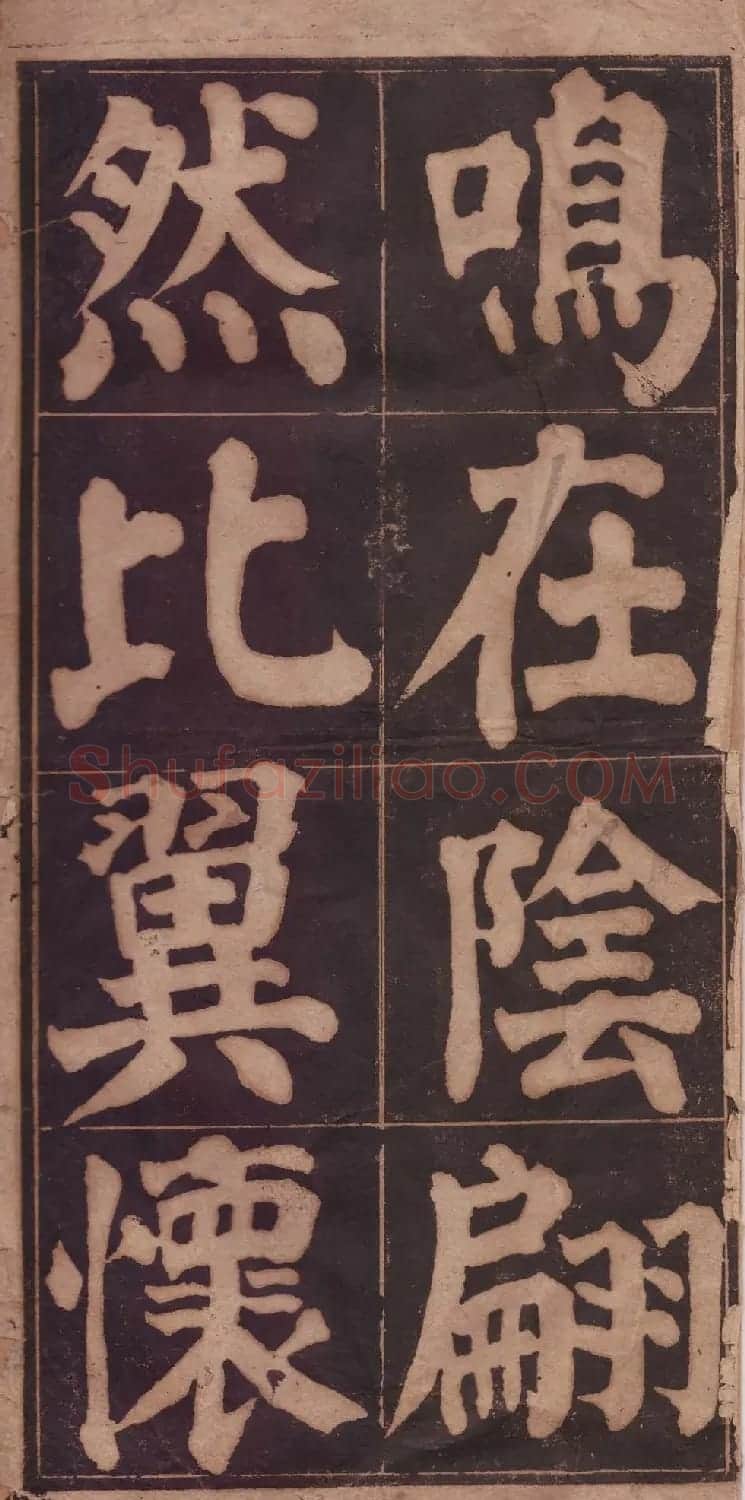 鳴在陰翩
然比翼懷
Shufaziliao.COM